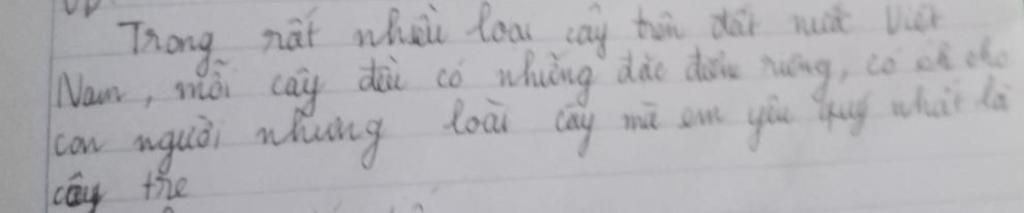 Trong rất nhiều loại cây trên đất nước Việt
Nam, mỗi cây đều có nhường đặc điểm riêng, có ích cho
con người nhưng loài cây mà em yêu quý nhất là
cây tre